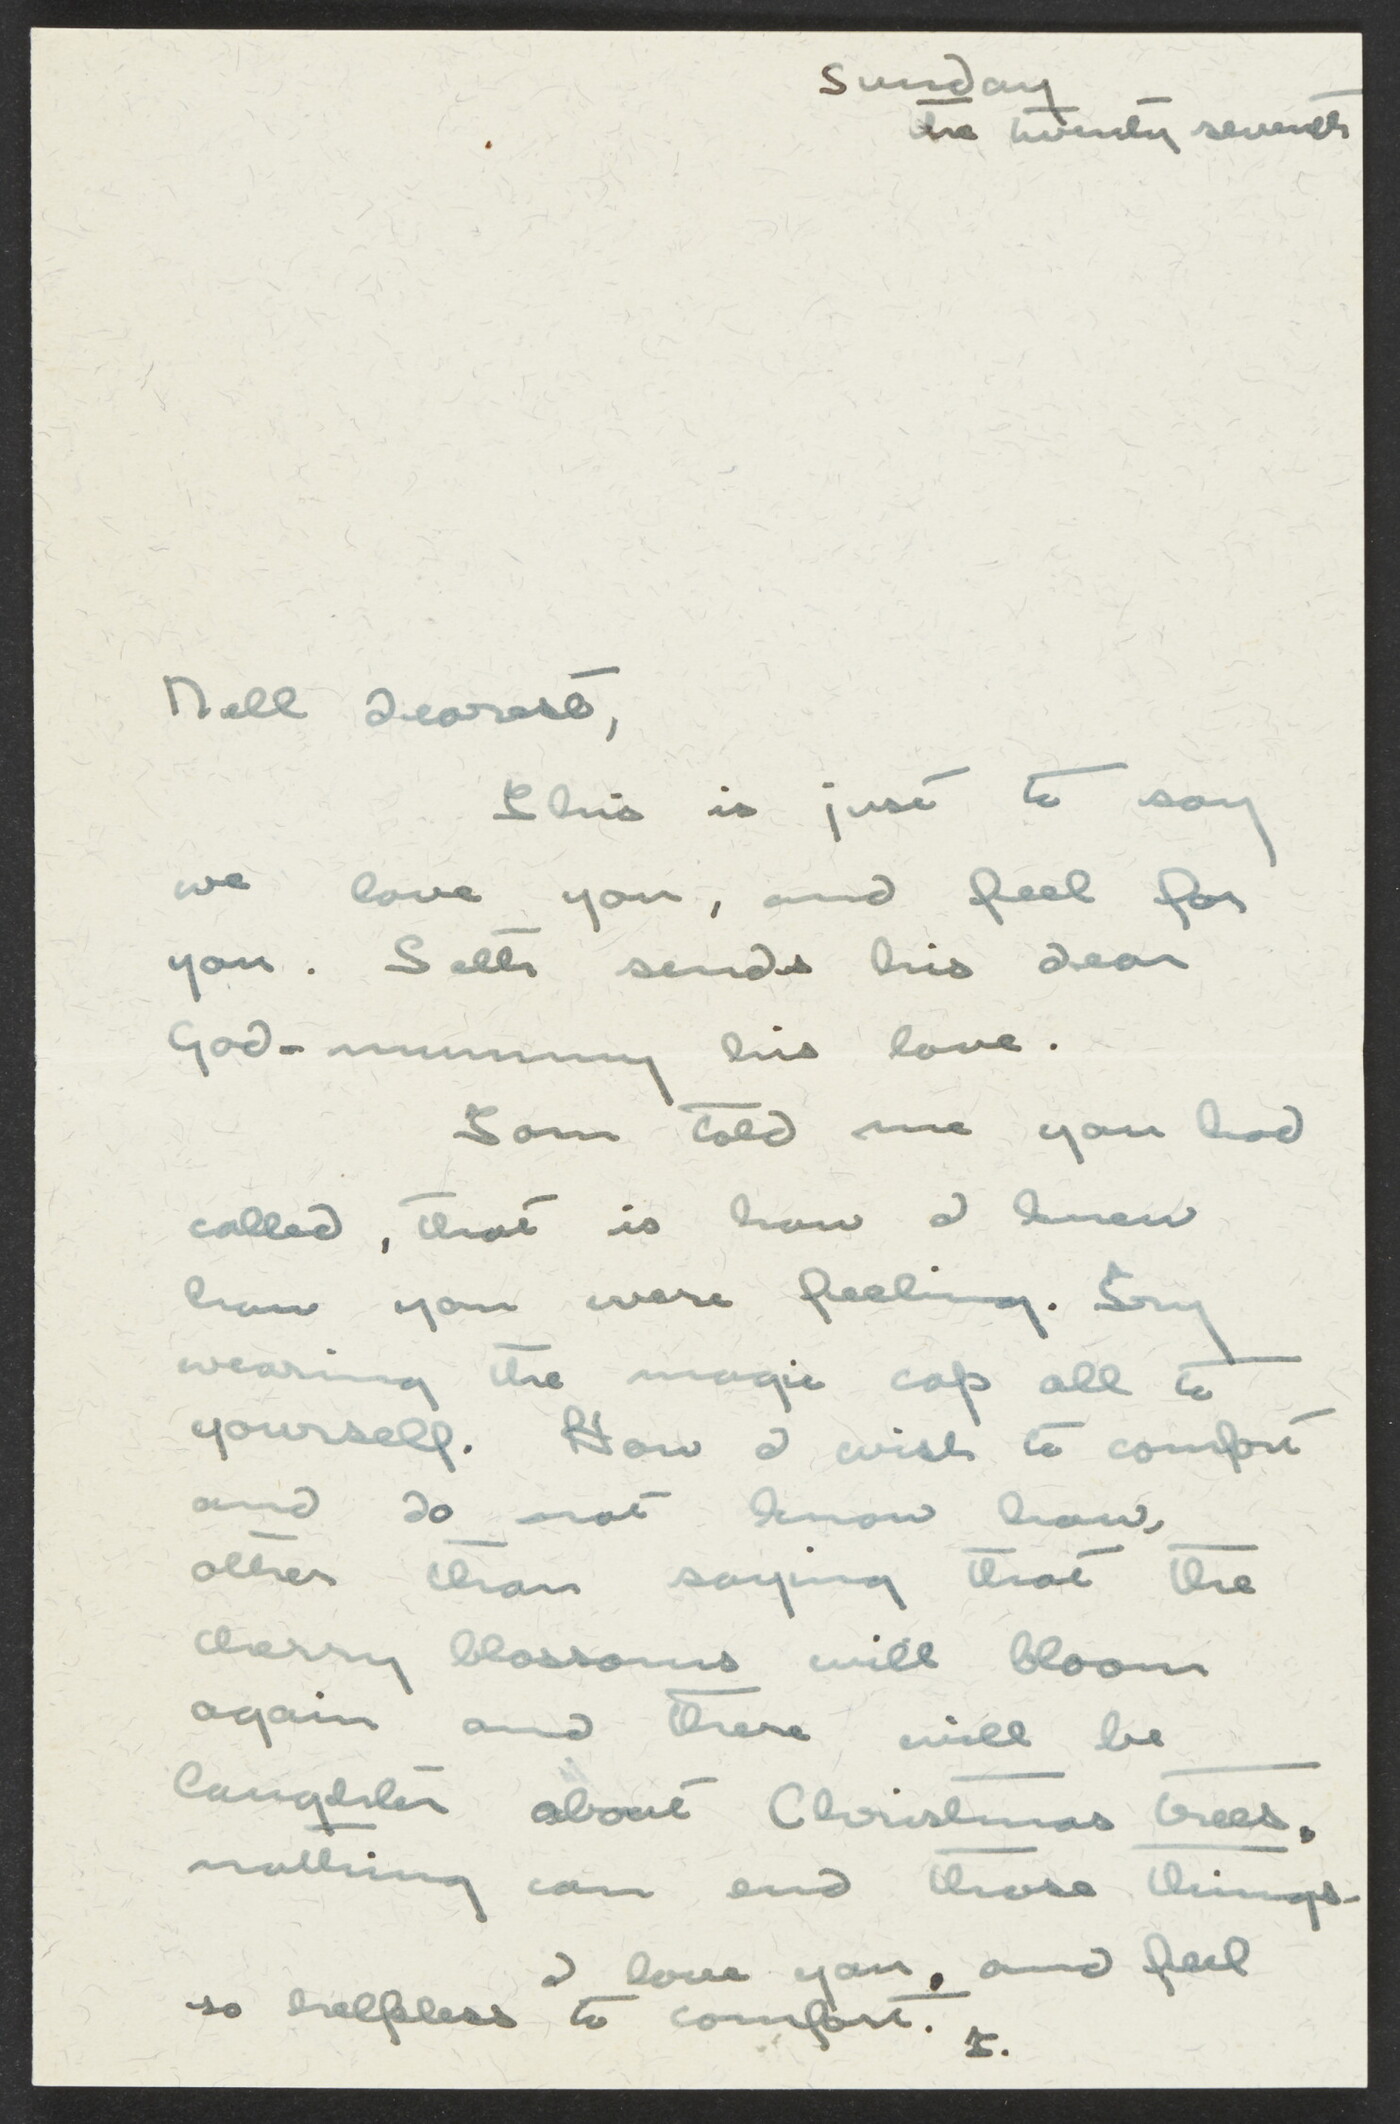 Sunday
the twenty seventh
Nell dearest,
This is just to say
we love you, and feel for
you. Seth sends his dear
God-mummy his love.
Tom told me you had
called, that is how I knew
how you were feeling. Try
wearing the magic cap all to
yourself. How I wish to comfort
and do not know how,
other than saying that the
cherry blossoms will bloom
again and there will be
laughter about Christmas trees,
nothing can end those things-
I love you, and feel
so helpless to comfort. T.